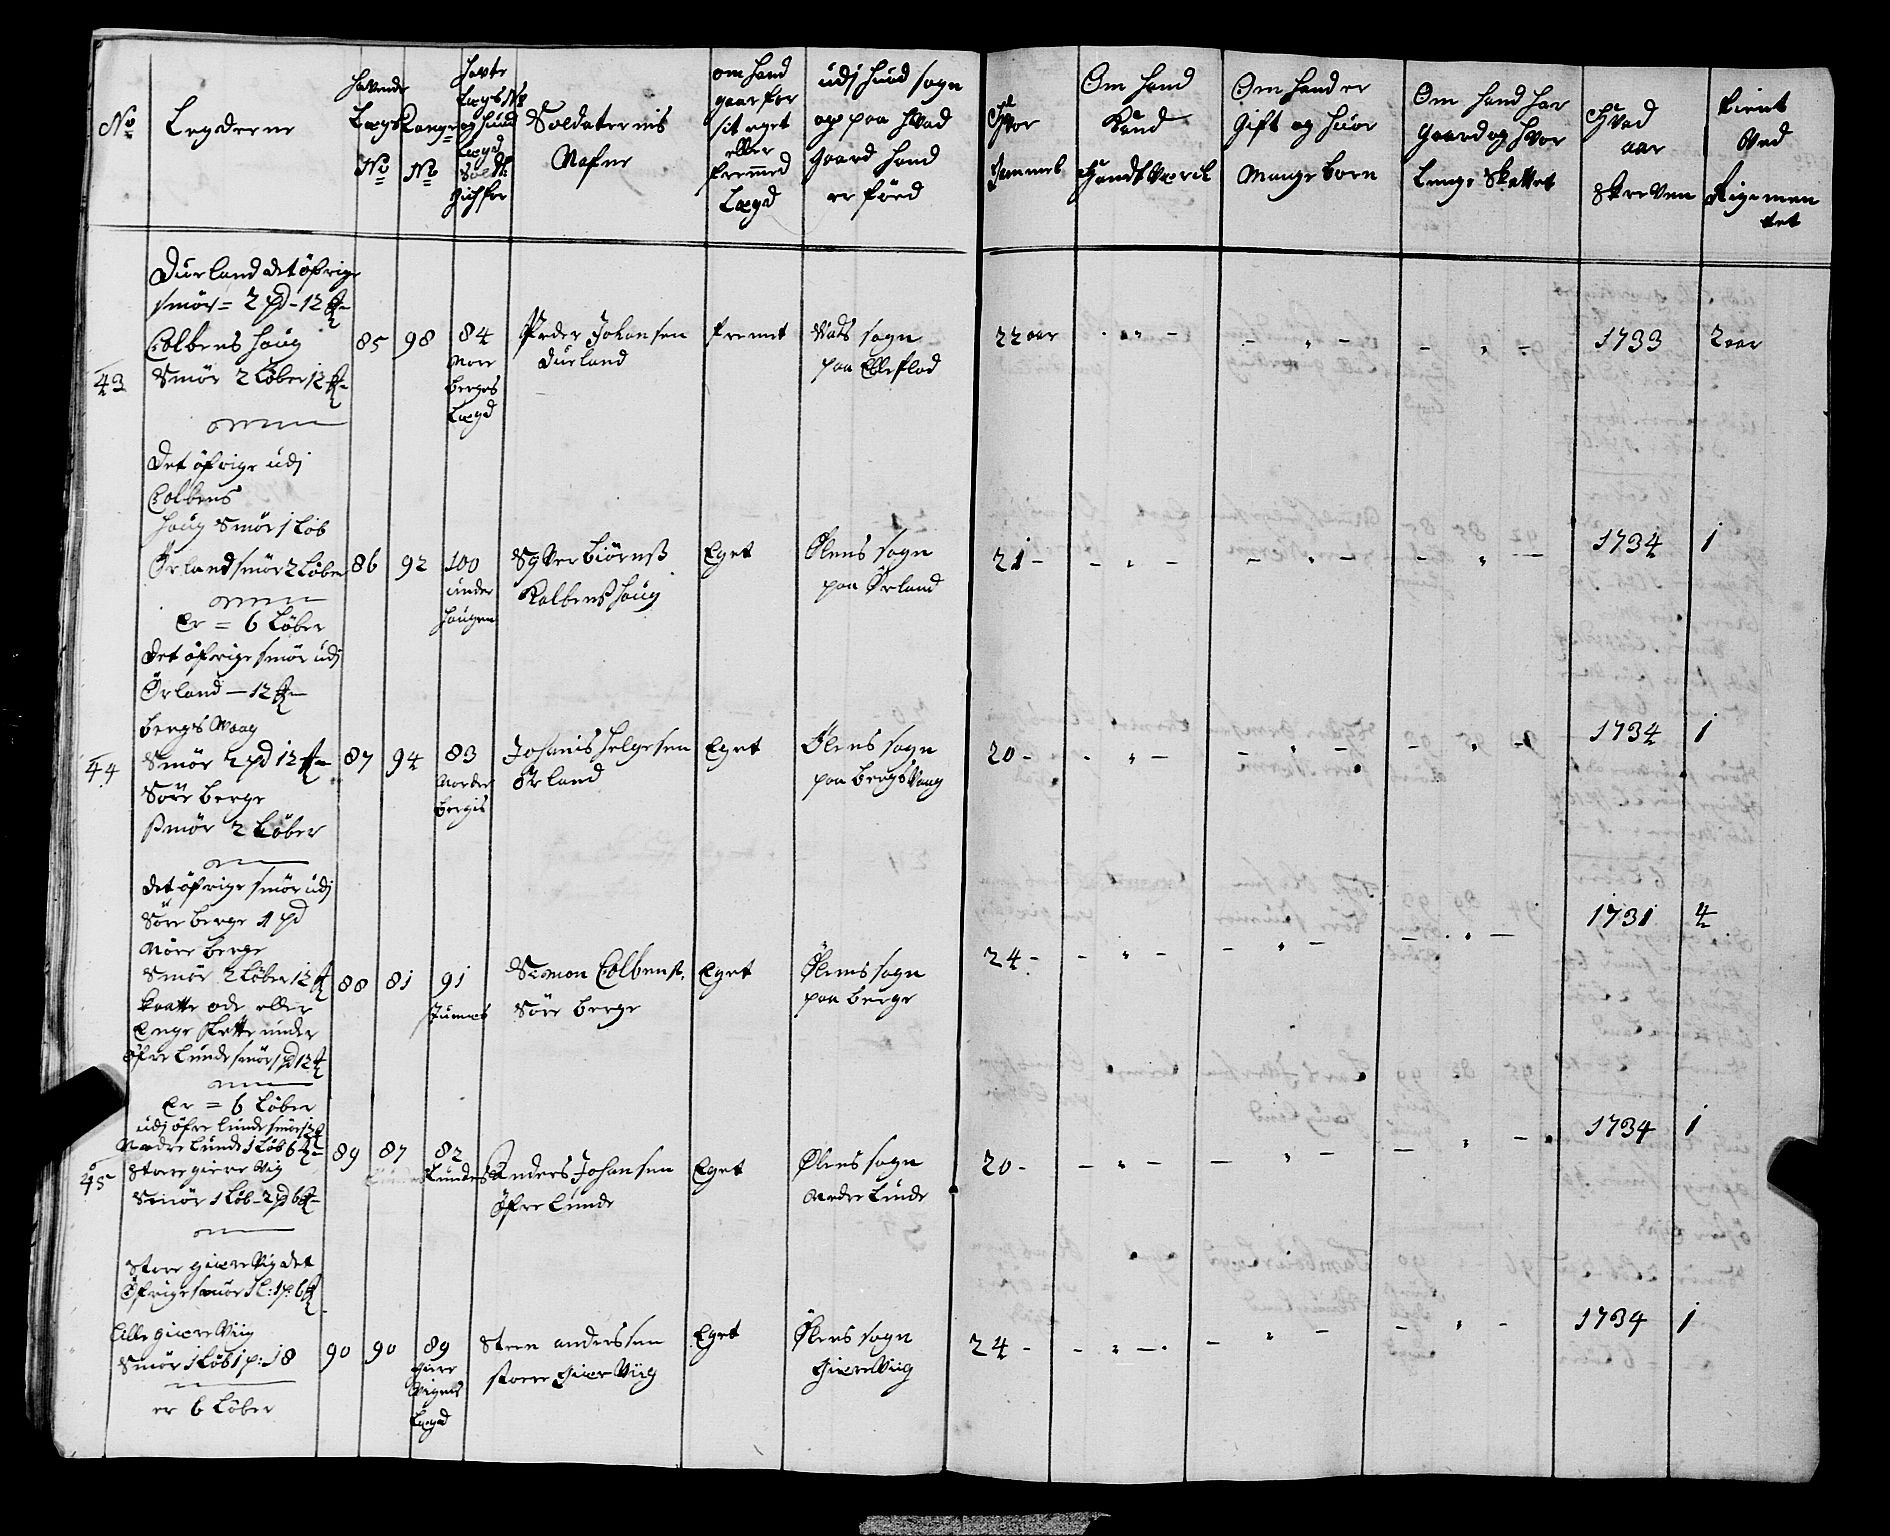 No
Legderne
havende
Lægs
No
Range
No
Soldaternis
Nafne
om hand
gaar for
sit eget
eller
fremmed
Lægd
udj huad sogn
og paa hvad
gaard hand
er föed
Hvor
gammel
Om hand
Kand
Handtverck
Om hand er
gift og huor
mange born
Om hand har
gaard og hvor
lenge skattet
Hvad
aar
skreven
tient
ved
Rigemen
tet
Durland det öfrige
smör = 2 pd - 12
Colbens houg
43
Smör 2 Löber 12
85
98
84
Nore
berges
Lægd
Peder Johansen
Durland
fremt
Vads sogn
paa Elleflod
22 aar
1733
2 aar
Det öfrige udj
Colbens
houg Smör 1 Löb
Örland smör 2 Löber
er = 6 Löber
86
92
100
under
hougen
Syver biörns
Kolbens houg
Eget
Ölens sogn
paa Örland
21 -
1734
1
Det öfrige smör udj
Örland - 12
bergs Waag
44
Smör 2 pd 12
Söre berge
smör 2 Löber
87
94
83
Norder
bergis
Johanis helgesen
Örland
Eget
Ölens sogn
paa bergs Vaag
20 -
1734
1
det öfrige smör udj
Söre berge 1 pd
Nöre berge
Smör 2 Löber 12
enge slette under
öfre Lunde smör 1 pd 12
er = 6 Löber
88
81
91
Simon Colbens.
Söre berge
Eget
Ölens sogn
paa berge
24 -
1731
4
udj öfre Lunde smör 12
45
Nedre Lunde 1 Löb 6
Store giere Vig
Smör 1 Löb - 2 pd 6
89
87
82
Lundes
Anders Johansen
öfre Lunde
Eget
Ölens sogn
Nedre Lunde
20 -
1734
1
Store giere Vig det
Öfrige smör 1 L: 1 p: 6
Lille giere Viig
Smör 1 Löb 1 p: 18
er 6 Löber
90
90
89
giere
Vigens
Lægd
Steen anderssen
store gier Viig
Eget
Ölens sogn
giere Viig
24 -
1734
1